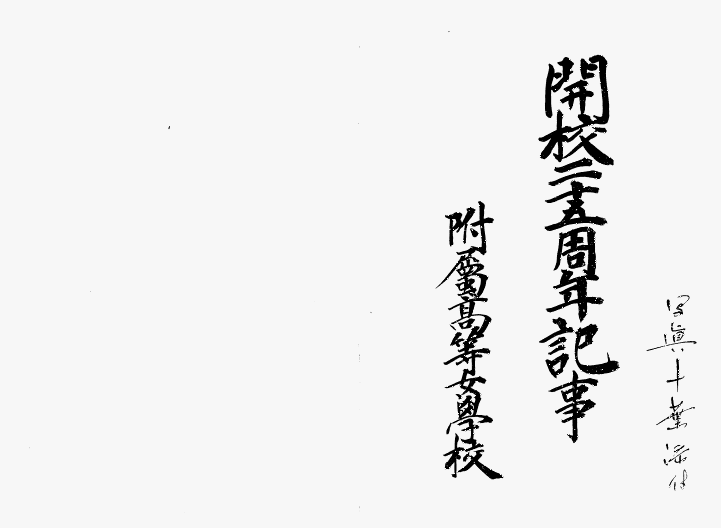 写眞十葉添付
開校二十五周年記事
附屬高等女學校